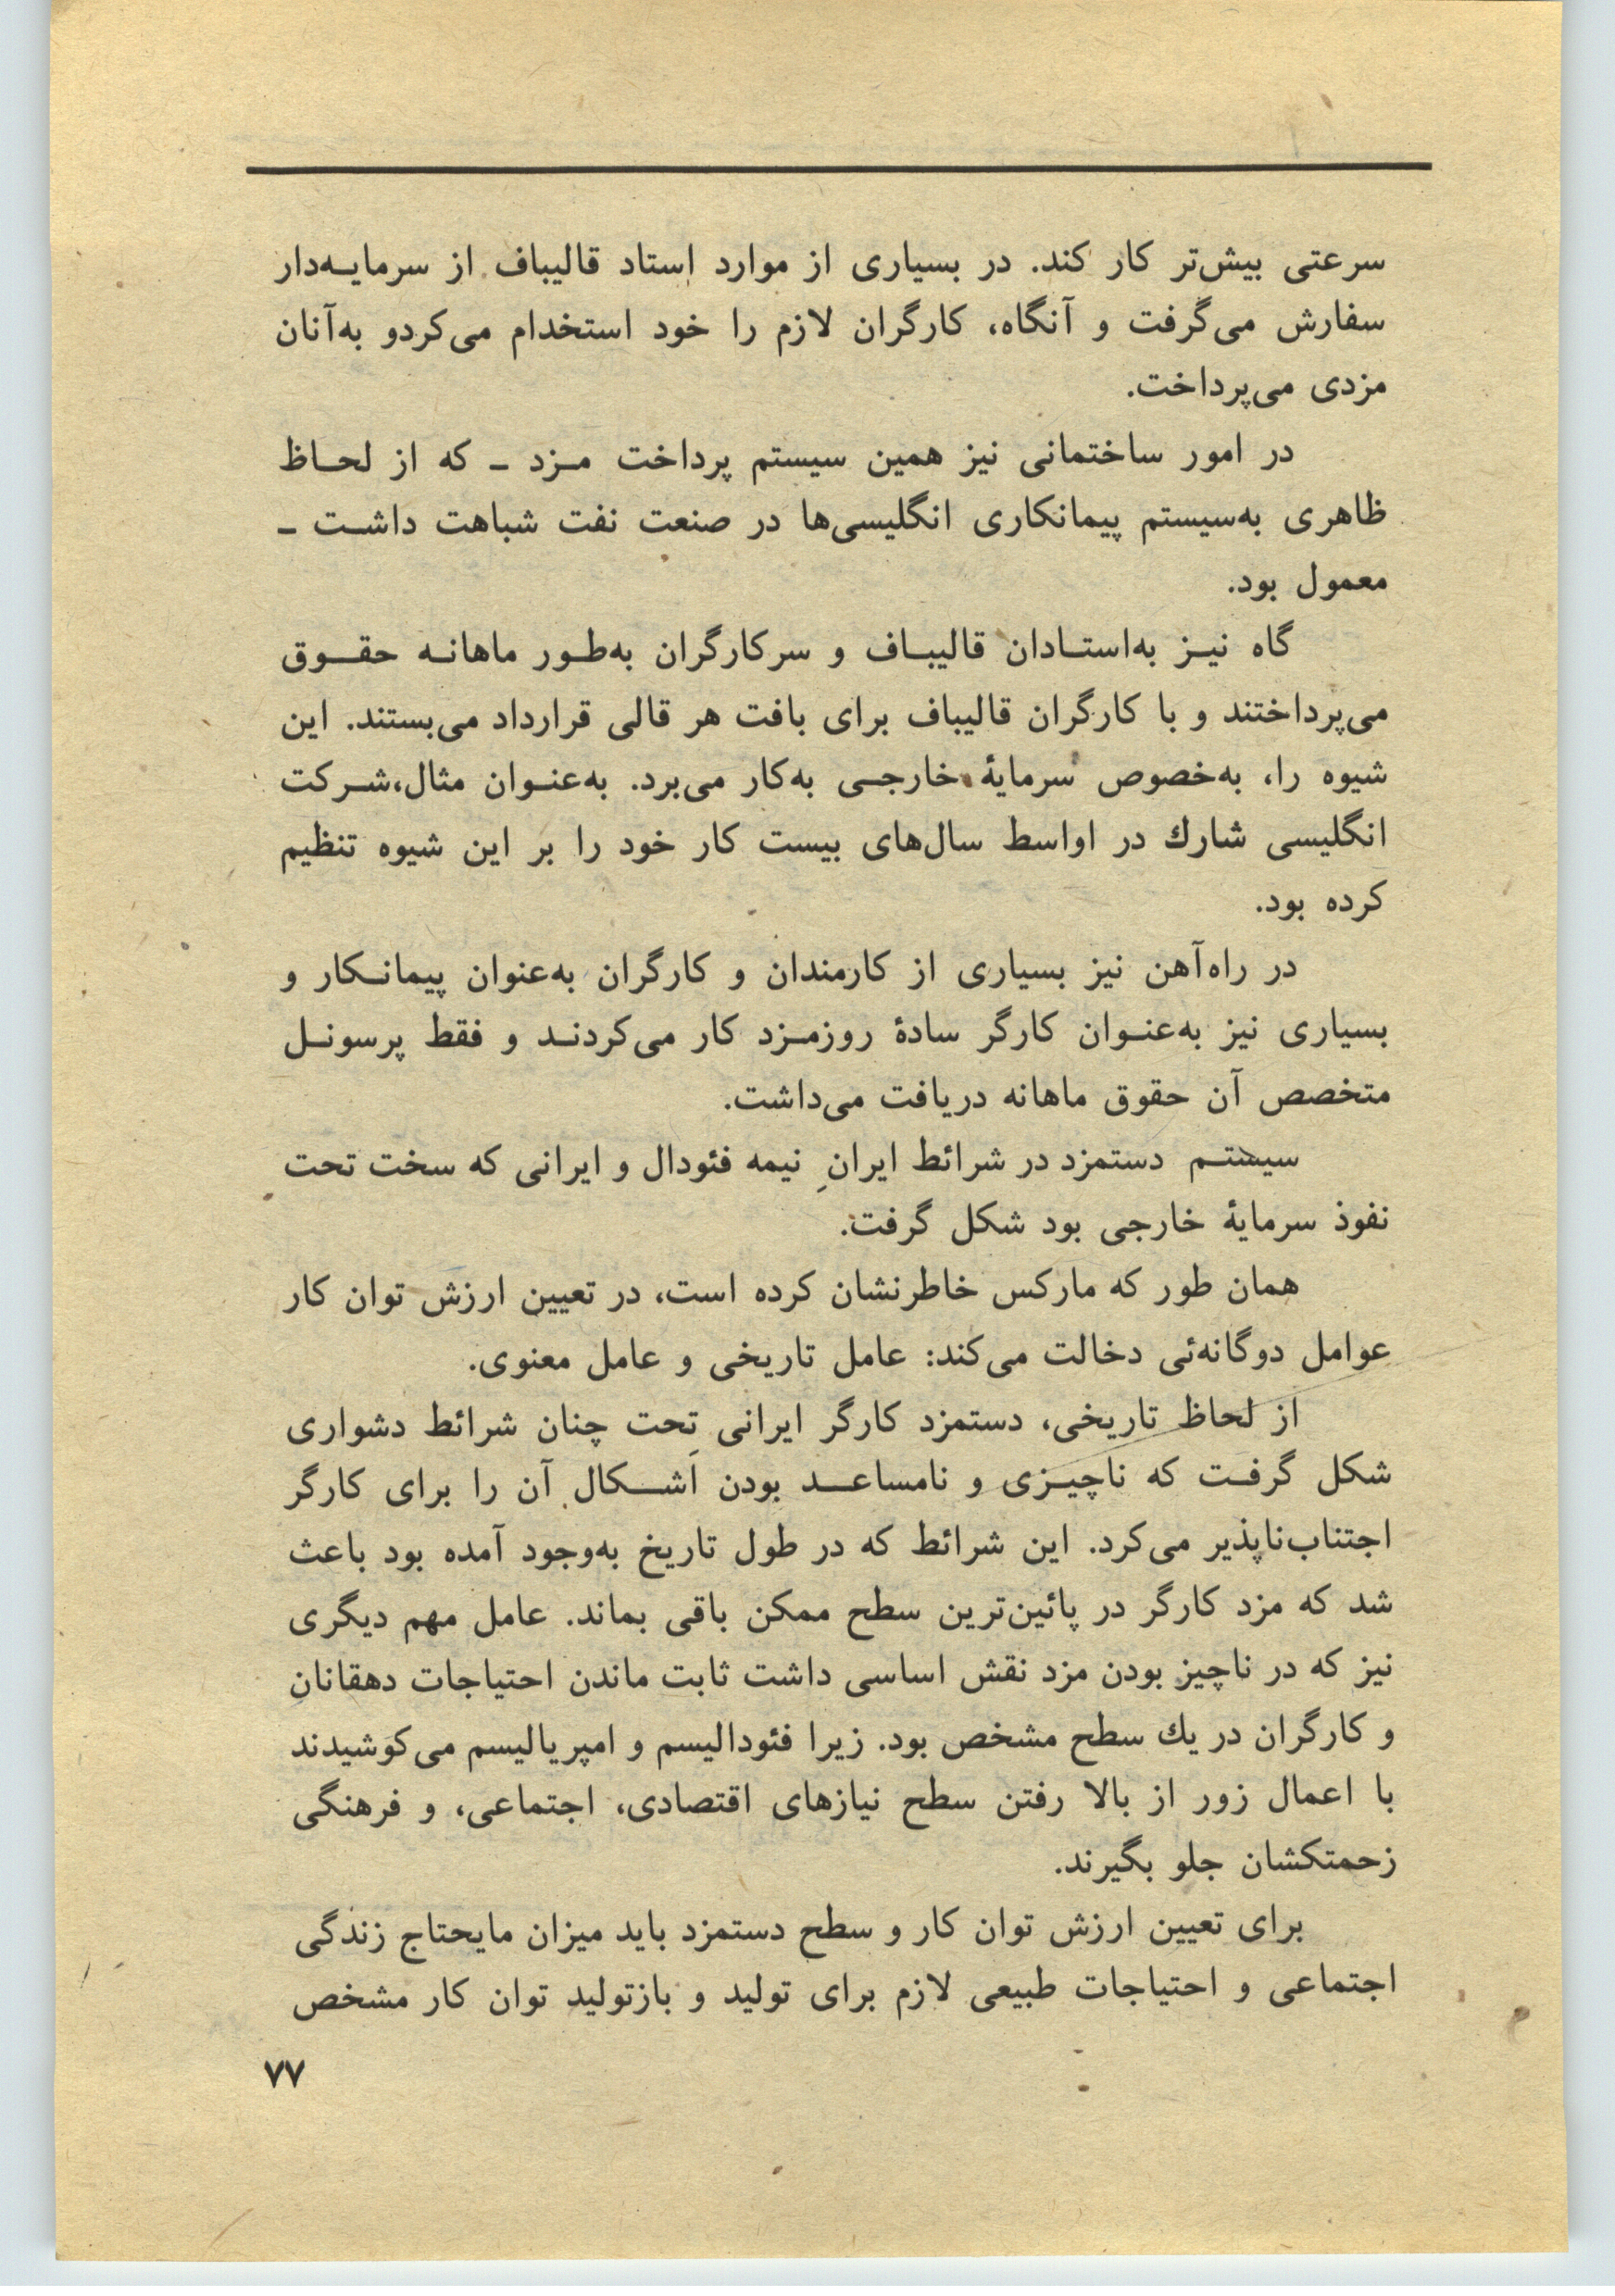 سرعتی بیش‌تر کار کند. در بسیاری از موارد استاد قالیباف از سرمایه‌دار
سفارش می‌گرفت و آنگاه، کارگران لازم را خود استخدام می‌کردو به‌آنان
مزدی می‌پرداخت.
در امور ساختمانی نیز همین سیستم پرداخت مزد ـ که از لحاظ
ظاهری به‌سیستم پیمانکاری انگلیسی‌ها در صنعت نفت شباهت داشت ـ
معمول بود.
گاه نیز به‌استادان قالیباف و سرکارگران به‌طور ماهانه حقوق
می‌پرداختند و با کارگران قالیباف برای بافت هر قالی قرارداد می‌بستند. این
شیوه را، به‌خصوص سرمایهٔ خارجی به‌کار می‌برد. به‌عنوان مثال،شرکت
انگلیسی شارك در اواسط سال‌های بیست کار خود را بر این شیوه تنظیم
کرده بود.
در راه‌آهن نیز بسیاری از کارمندان و کارگران به‌عنوان پیمانکار و
بسیاری نیز به‌عنوان کارگر سادهٔ روزمزد کار می‌کردند و فقط پرسونل
متخصص آن حقوق ماهانه دریافت می‌داشت.
سیستم دستمزد در شرائط ایرانِ نیمه فئودال و ایرانی که سخت تحت
نفوذ سرمایهٔ خارجی بود شکل گرفت.
همان طور که مارکس خاطرنشان کرده است، در تعیین ارزش توان کار
عوامل دوگانه‌ئی دخالت می‌کند: عامل تاریخی و عامل معنوی.
از لحاظ تاریخی، دستمزد کارگر ایرانی تحت چنان شرائط دشواری
شکل گرفت که ناچیزی و نامساعد بودن اَشکال آن را برای کارگر
اجتناب‌ناپذیر می‌کرد. این شرائط که در طول تاریخ به‌وجود آمده بود باعث
شد که مزد کارگر در پائین‌ترین سطح ممکن باقی بماند. عامل مهم دیگری
نیز که در ناچیز بودن مزد نقش اساسی داشت ثابت ماندن احتیاجات دهقانان
و کارگران در یك سطح مشخص بود. زیرا فئودالیسم و امپریالیسم می‌کوشیدند
با اعمال زور از بالا رفتن سطح نیازهای اقتصادی، اجتماعی، و فرهنگی
زحمتکشان جلو بگیرند.
برای تعیین ارزش توان کار و سطح دستمزد باید میزان مایحتاج زندگی
اجتماعی و احتیاجات طبیعی لازم برای تولید و بازتولید توان کار مشخص
۷۷